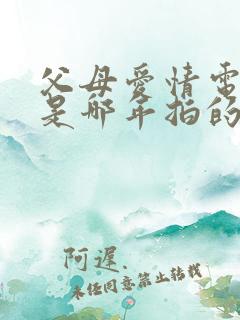 父母愛情電
是哪年拍的
阿遲.
未经同意禁止转载